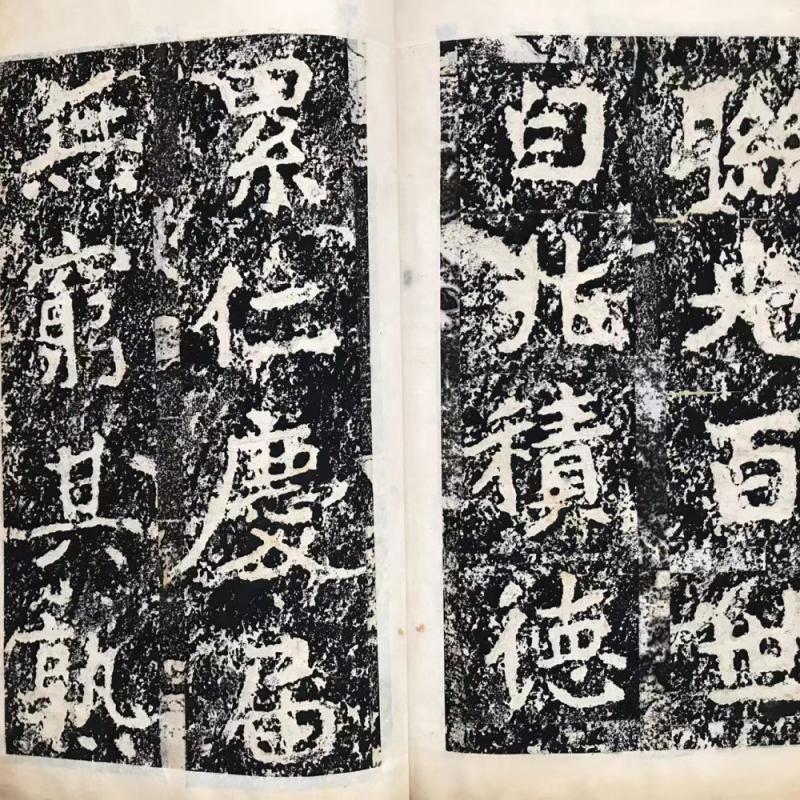 聯光百世
自非積德
累仁慶屆
無窮其孰